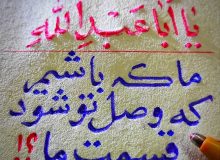 يَا أَبَا عَبْدِ اللّٰهِ
ما که باشیم
که وصل تو شود
قسمت ما؟!